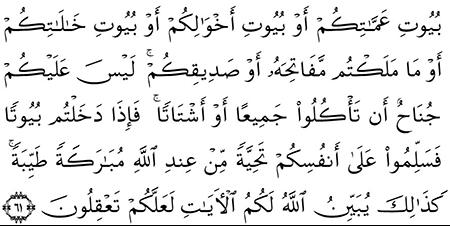 بُيُوتِ عَمَّٰتِكُمْ أَوْ بُيُوتِ أَخْوَٰلِكُمْ أَوْ بُيُوتِ خَٰلَٰتِكُمْ
أَوْ مَا مَلَكْتُم مَّفَاتِحَهُۥٓ أَوْ صَدِيقِكُمْ ۚ لَيْسَ عَلَيْكُمْ
جُنَاحٌ أَن تَأْكُلُوا۟ جَمِيعًا أَوْ أَشْتَاتًا ۚ فَإِذَا دَخَلْتُم بُيُوتًا
فَسَلِّمُوا۟ عَلَىٰٓ أَنفُسِكُمْ تَحِيَّةً مِّنْ عِندِ ٱللَّهِ مُبَٰرَكَةً طَيِّبَةً ۚ
كَذَٰلِكَ يُبَيِّنُ ٱللَّهُ لَكُمُ ٱلْءَايَٰتِ لَعَلَّكُمْ تَعْقِلُونَ ٦١